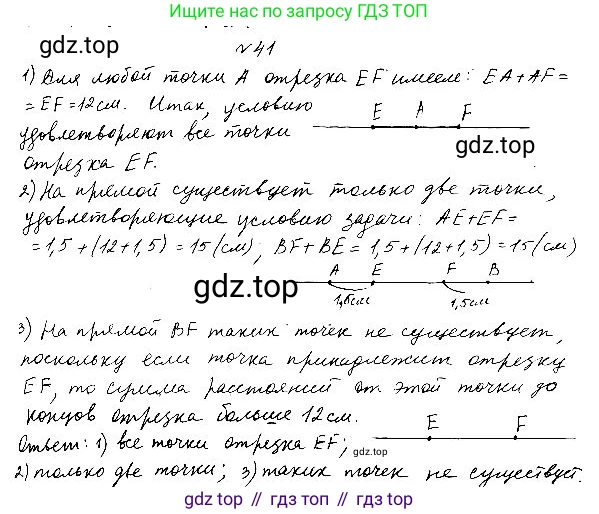 Ищите нас по запросу gdz.top
gdz.top
№41
1) Для любой точки A отрезка EF имеем: EA+AF=
=EF=12см. Итак, условию
удовлетворяют все точки
отрезка EF.
E A F
gdz.top
2) На прямой существует только две точки,
удовлетворяющие условию задачи: AE+EF=
=1,5+(12+1,5)=15(см); BF+BE=1,5+(12+1,5)=15(см)
A E F B
gdz.top
1,5см 1,5см
3) На прямой BF таких точек не существует,
поскольку если точка принадлежит отрезку
EF, то сумма расстояний от этой точки до
концов отрезка больше 12 см.
E F
Ответ: 1) все точки отрезка EF;
gdz.top
2) только две точки; 3) таких точек не существует.
gdz top // гдз топ // gdz top // гдз топ